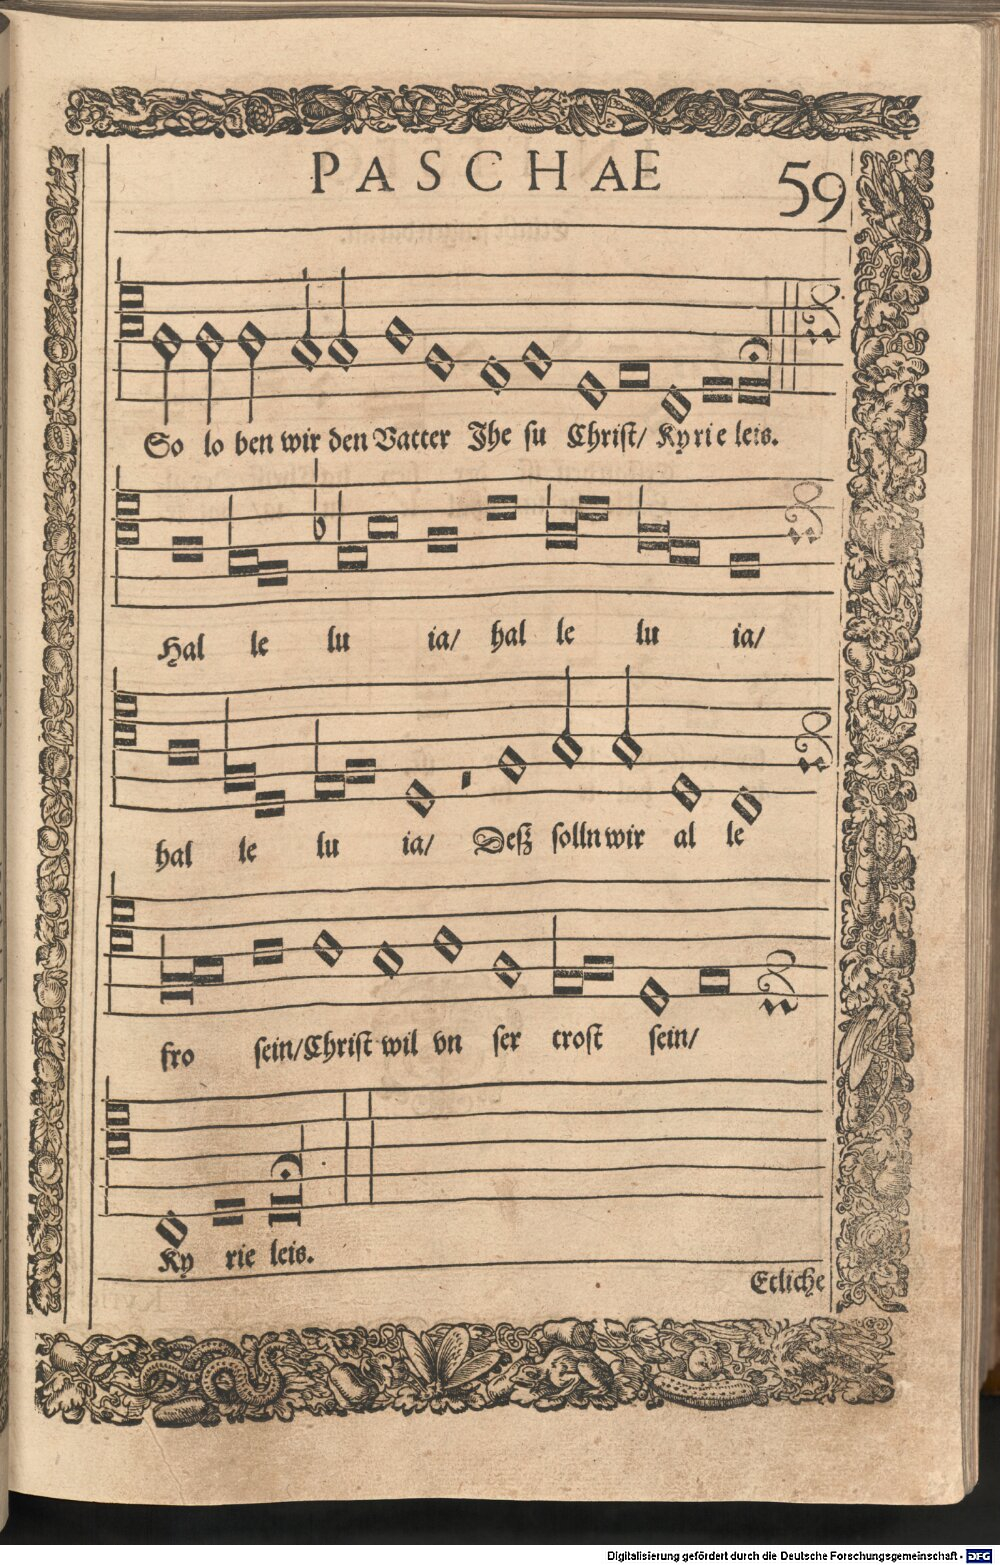 PASCHAE
59
So lo ben wir den Vatter Jhe su Christ/ Kyrie leis.
Hal le lu ia/ hal le lu ia/
hal le lu ia/ Deß solln wir al le
fro sein/ Christ wil vn ser trost sein/
Ky rie leis.
Etliche
Digitalisierung gefördert durch die Deutsche Forschungsgemeinschaft - DFG